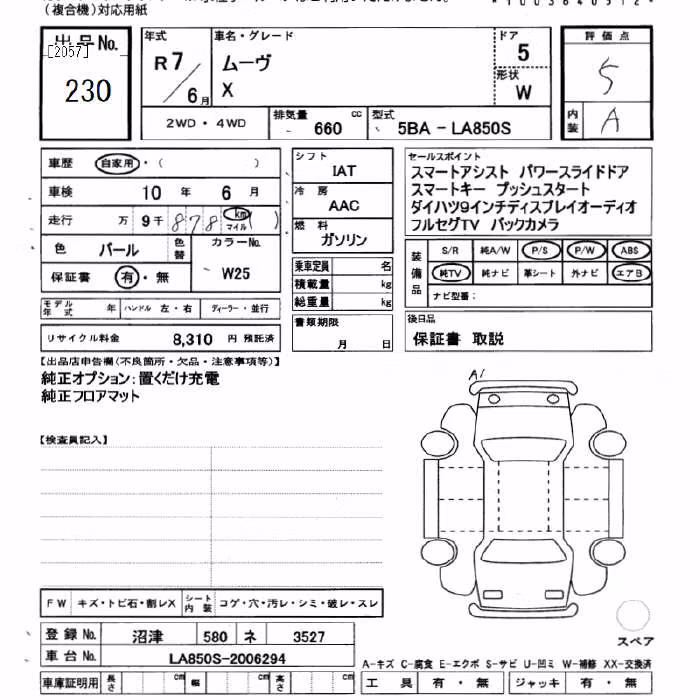 (複合機)対応用紙
出品No.
[2057]
230
年式
R7/6月
車名・グレード
ムーヴ
X
ドア
5
形状
W
評価点
5
内装
A
2WD・4WD
排気量 cc
660
型式
5BA-LA850S
車歴 自家用・( )
車検 10年 6月
走行 万9千878 km マイル
色 パール
色替
カラーNo.
W25
保証書 有・無
モデル年式 年 ハンドル 左・右 ディーラー・並行
リサイクル料金 8,310 円 預託済
シフト
IAT
冷房
AAC
燃料
ガソリン
乗車定員 名
積載量 kg
総重量 kg
書類期限
月 日
セールスポイント
スマートアシスト パワースライドドア
スマートキー プッシュスタート
ダイハツ9インチディスプレイオーディオ
フルセグTV バックカメラ
装備品
S/R 純A/W P/S P/W ABS
純TV 純ナビ 革シート 外ナビ エアB
ナビ型番:
後日品
保証書 取説
【出品店申告欄(不良箇所・欠品・注意事項等)】
純正オプション:置くだけ充電
純正フロアマット
A1
【検査員記入】
FW キズ・トビ石・割レX
シート内装 コゲ・穴・汚レ・シミ・破レ・スレ
登録No. 沼津 580 ネ 3527
車台No. LA850S-2006294
車庫証明用 長さ cm 幅 cm 高さ cm
スペア
A-キズ C-腐食 E-エクボ S-サビ U-凹ミ W-補修 XX-交換済
工具 有・無 ジャッキ 有・無